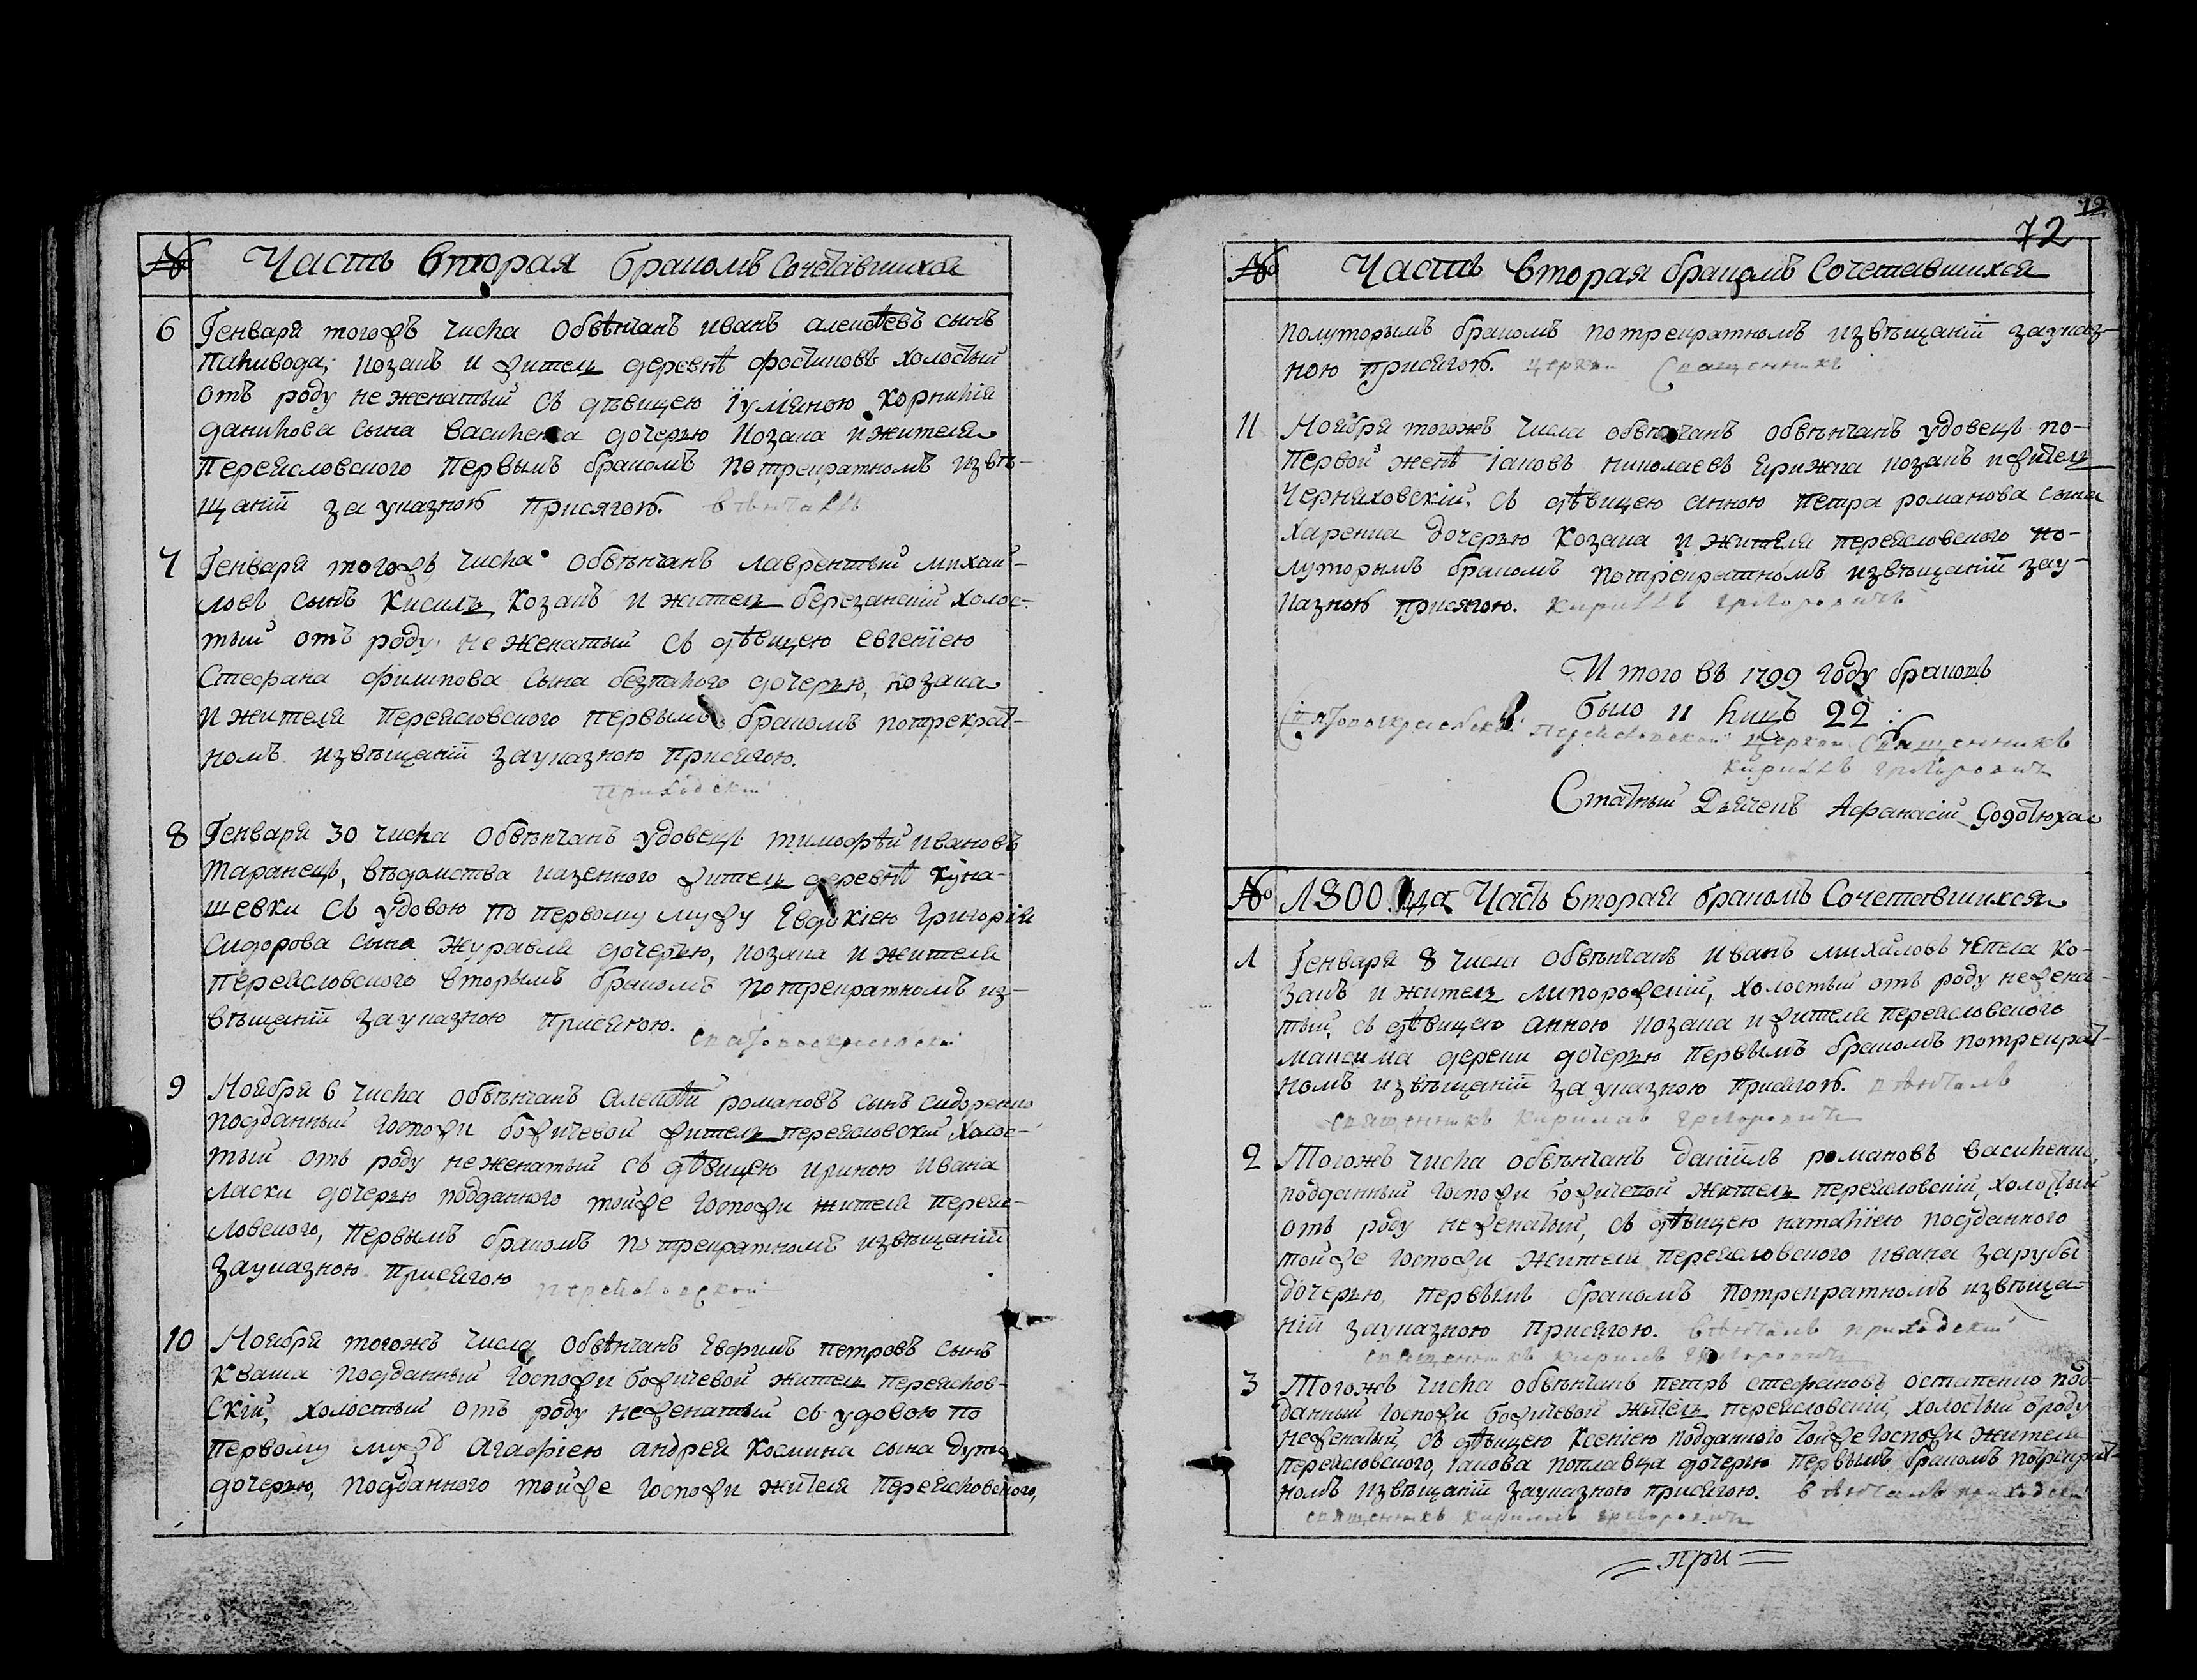 № Часть вторая бракомъ сочетавшихся
6 Генваря тогожъ числа обвѣнчанъ иванъ алексѣевъ сынъ
паливода, козакъ и житель деревнѣ фостиковъ холостый
отъ роду не женатый съ дѣвицею іуліяною корнилія
данилова сына василенка дочерью козака и жителя
переясловского первымъ бракомъ потрекратномъ извѣ-
щаніи за указною присягою. вѣнчалъ
7 Генваря тогожъ числа обвѣнчанъ лаврентый михай-
ловъ сынъ кисиль, козакъ и житель березанскій холос-
тый отъ роду не женатый съ дѣвицею евгеніею
Стефана филипова сына безпалого дочерью, козака
и жителя переясловского первымъ бракомъ потрекрат-
номъ извѣщаніи зауказною присягою.
приходскій
8 Генваря 30 числа обвѣнчанъ удовецъ тимофѣй ивановъ
таранецъ, вѣдомства казенного житель деревнѣ куна-
шевки съ удовою по первому мужу Евдокіею григорія
Сидорова сына журавля дочерью, козака и жителя
переясловского вторымъ бракомъ потрекратномъ из-
вѣщаніи зауказною присягою.
святовоскресенской
9 Ноября 6 числа обвѣнчанъ алексѣй романовъ сынъ сидоренко
подданный госпожи божичевой житель переясловскій холос-
тый отъ роду неженатый съ дѣвицею ириною ивана
ласки дочерью подданного тойже госпожи жителя перея-
ловского, первымъ бракомъ потрекратномъ извѣщаніи
зауказною присягою переясловской
10 Ноября тогожъ числа обвѣнчанъ Ефимъ петровъ сынъ
кваша подданный госпожи божичевой житель переяслов-
скій, холостый отъ роду неженатый съ удовою по
первому мужу агафіею андрея космина сына
дочерью, подданного тойже госпожи жителя переясловского,
72
72
№ Часть вторая бракомъ сочетавшихся
полуторымъ бракомъ потрекратномъ извѣщаніи зауказ-
ною присягою. церкви Священникъ
11 Ноября тогожъ числа обвѣнчанъ обвѣнчанъ удовецъ по-
первой женѣ іаковъ николаевъ ярижка козакъ и житель
Черняховскій, съ дѣвицею анною петра романова сына
харенка дочерью козака и жителя переясловского по-
луторымъ бракомъ потрекратномъ извѣщаніи зау-
казною присягою. кириллъ григоровичъ
И того въ 1799 году браковъ
было 11 лицъ 22:
святовоскресенской переясловской церкви Священникъ
кириллъ григоровичъ
Статный Дьячекъ Афанасій
№ 1800 года Часть вторая бракомъ сочетавшихся
1 Генваря 8 числа обвѣнчанъ иванъ михаловъ чепела ко-
закъ и житель липорожскій, холостый отъ роду нежена-
тый, съ дѣвицею анною козака и жителя переясловского
максима дереки дочерью первымъ бракомъ потрекрат-
номъ извѣщаніи за указною присягою. вѣнчалъ
священникъ кириллъ григоровичъ
2 Тогожъ числа обвѣнчанъ даніилъ романовъ василенко,
подданный госпожи божичевой житель переясловскій, холостый
отъ роду неженатый, съ дѣвицею наталіею подданного
тойже госпожи жителя переясловского ивана зарубы
дочерью, первымъ бракомъ потрекратномъ извѣща-
ніи зауказною присягою. вѣнчалъ приходскій
священникъ кириллъ григоровичъ
3 Тогожъ числа обвѣнчанъ петръ стефановъ остапенко под-
данный госпожи божичевой житель переясловскій, холостый ѿ роду
неженатый, съ дѣвицею ксеніею подданного тойже госпожи жителя
переясловского, іакова поплавца дочерью первымъ бракомъ потрекрат-
номъ извѣщаніи зауказною присягою. вѣнчалъ приходскій
священникъ кириллъ григоровичъ
при